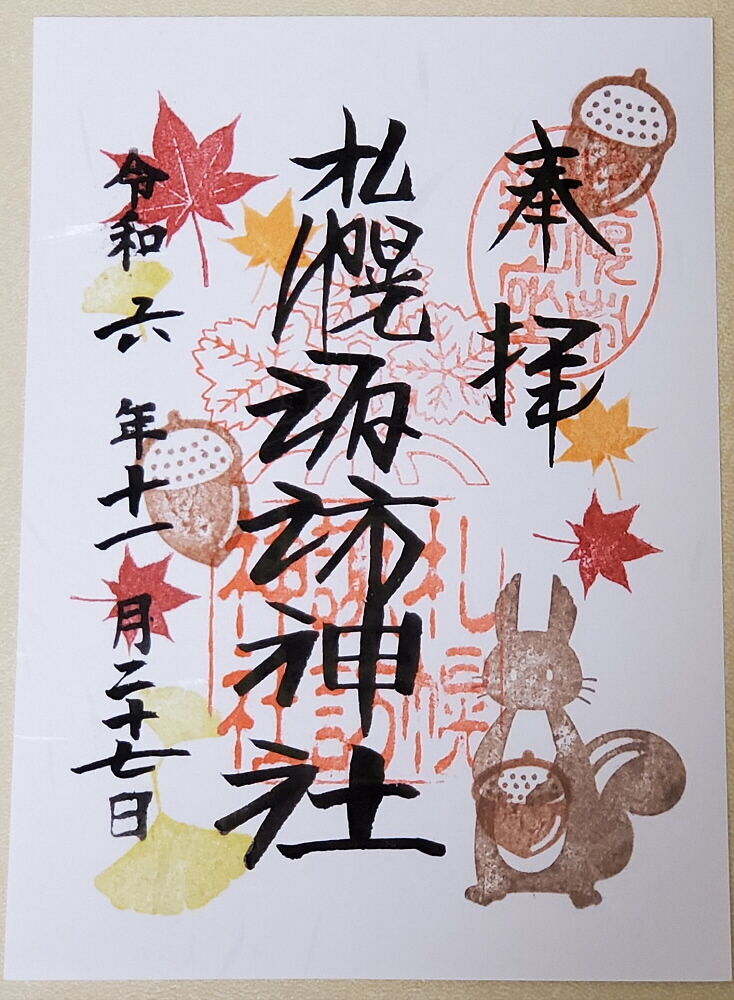 奉拝
札幌諏訪神社
令和六年十一月二十七日
札幌
諏訪
神社